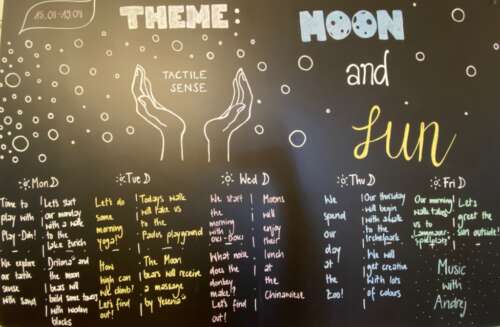 15.01-19.01
THEME:
MOON
and
Sun
TACTILE
SENSE
Mon D
Time to
play with
Play-Doh!
We explore
our
sense
with sand
We start
our monday
with a walk
to the
Lake Zurich
and
the moon
bears will
build some
with wooden
blocks
Tue D
Let's do
some
morning
yoga!
How
high can
we climb?
Let's find
out!
Today's walk
will take us
to the
playground
The Moon
bears will receive
a massage
by
Wed D
We start
the
morning
with
What noise
does the
donkey
make!?
Let's find
out!
Moons
will
enjoy
their
lunch
at
Chinawiese
Thu D
We
spend
our
day
at
the
Zoo!
Our thursday
will begin
with a walk
to the
We will
get creative
with lots
of colours
Fri D
Our morning
walk takes
us to
Let's
greet
the
sun outside!
Music
with
Andrej